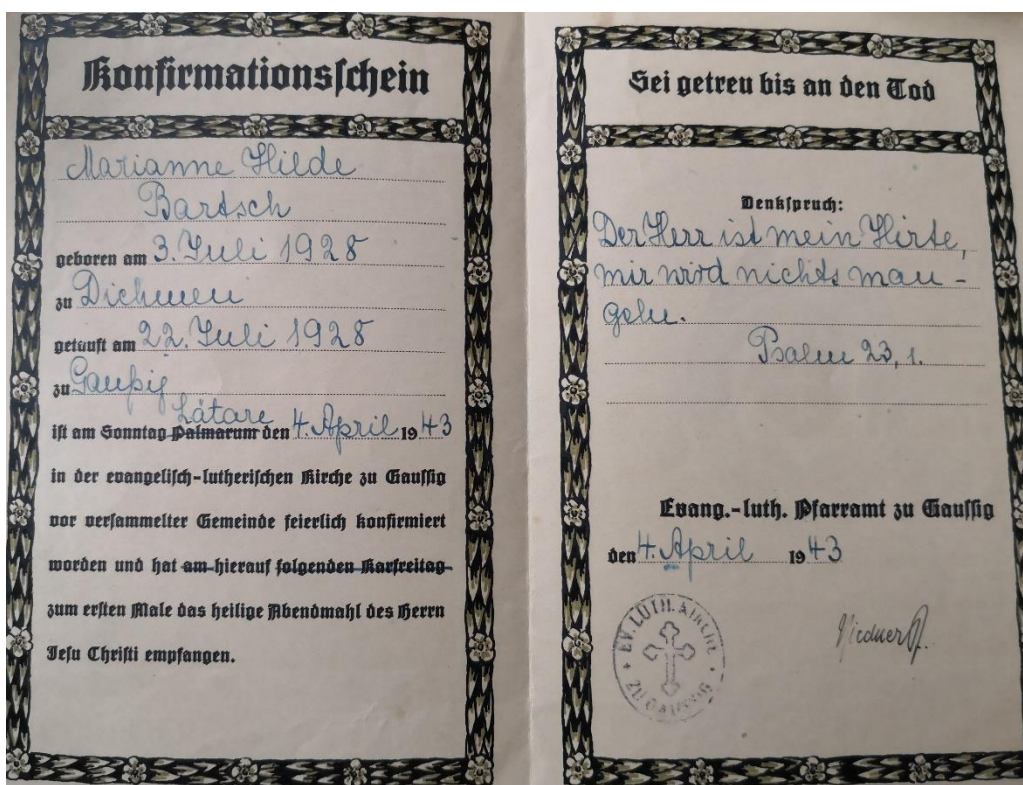 Konfirmationsschein
Marianne Hilde
Bartsch
geboren am 3. Juli 1928
zu Diehmen
getauft am 22. Juli 1928
zu Gaußig
Lätare
ist am Sonntag Palmarum den 4. April 1943
in der evangelisch-lutherischen Kirche zu Gaussig
vor versammelter Gemeinde feierlich konfirmiert
worden und hat am hierauf folgenden Karfreitag
zum ersten Male das heilige Abendmahl des Herrn
Jesu Christi empfangen.
Sei getreu bis an den Tod
Denkspruch:
Der Herr ist mein Hirte,
mir wird nichts man-
geln.
Psalm 23, 1.
Evang.-luth. Pfarramt zu Gaussig
den 4. April 1943
EV. LUTH. KIRCHE
ZU GAUSSIG